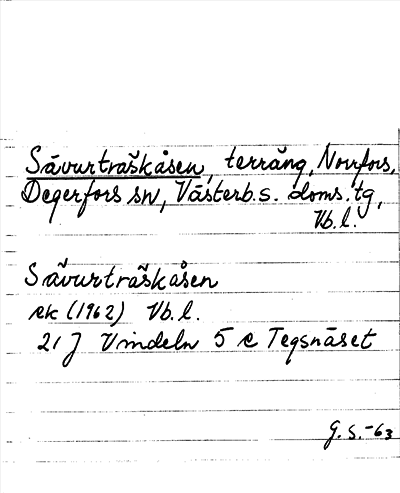 Sävurträskåsen, terräng, Norrfors,
Degerfors sn, Västerb. s. doms. tg,
Vb. l.
Sävurträskåsen
ek (1962) Vb. l.
21 J Vindeln 5 e Tegsnäset
G. S. -63